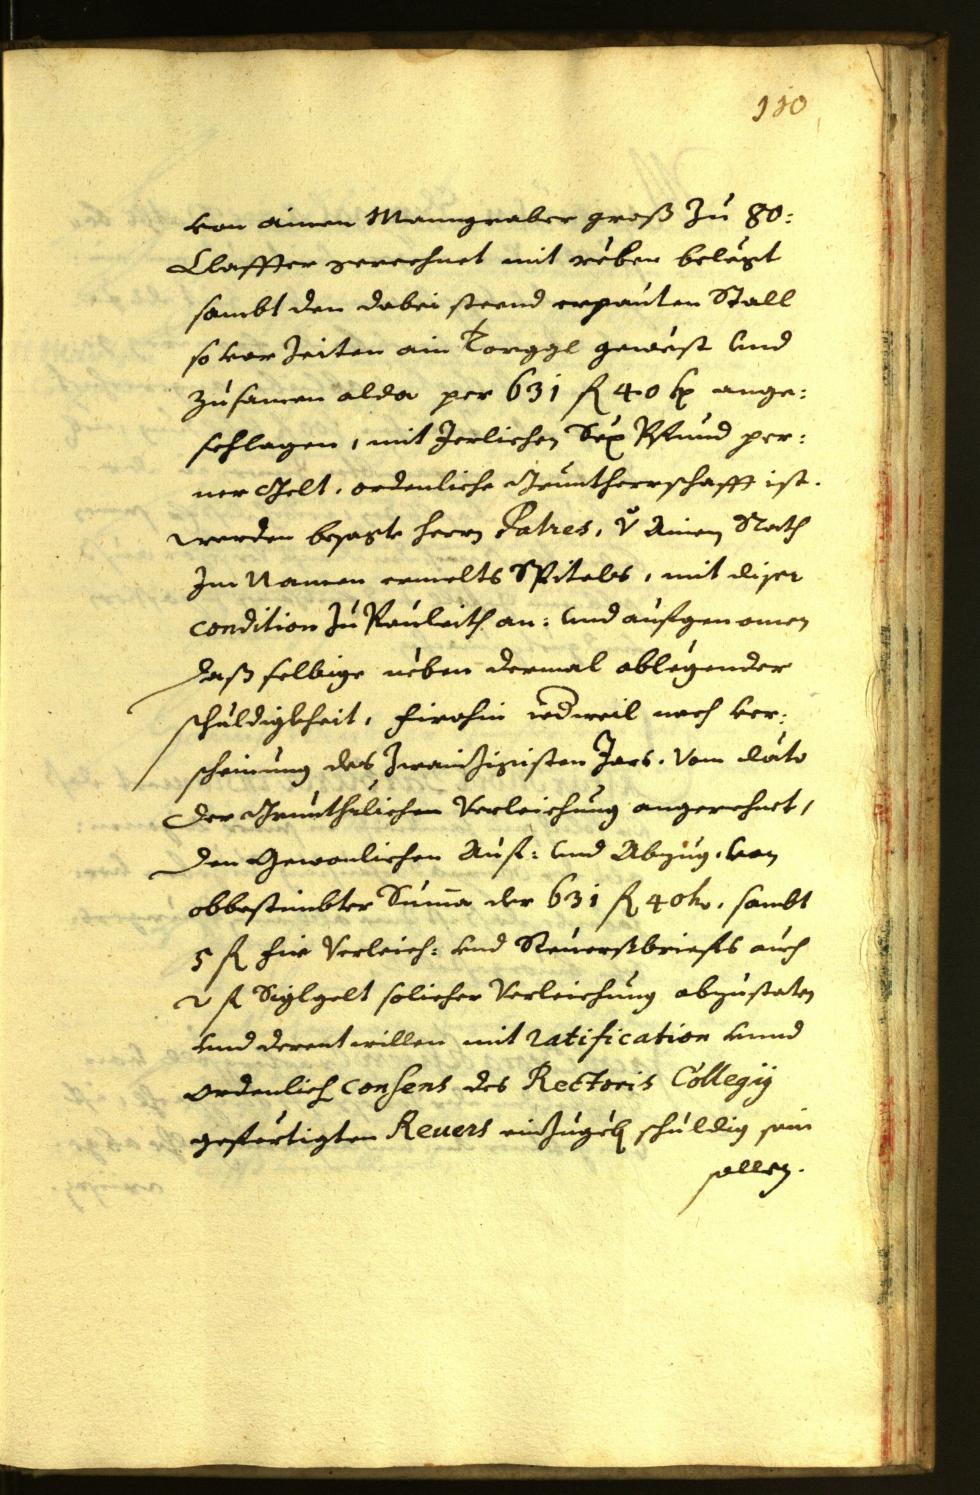 110
von ainen Manngraber groß zu 80:
Claffter gerechnet mit reben belegt
sambt den dabei steend erpauten Stall
so vor zeiten ain Torggl gewest vnd
zusamen alda per 631 fl 40 kr ange:
schlagen, mit Jerlichen Sex Pfund per:
ner Gelt, ordenliche Gruntherrschafft ist.
werden besagte herrn Patres, v̊ Ainen Rath
Im Namen ermelts Spitals, mit diser
condition zu Pauleith an: vnd aufgenomen
daß selbige neben dermal ablegender
schuldigkheit, firohin iedweil nach ver:
scheinung des zwainzigisten Jars. Vom dato
der Grunthlichen Verleichung angerechnet,
den Gewonlichen Auf: vnd Abzug, von
obbestimbter Suma der 631 fl 40 kr. sambt
5 fl für Verleich: vnd Steuersbriefs auch
2 fl Siglgelt solicher Verleichung abzustaten
vnd derentwillen mit ratification vnnd
ordenlich Consens des Rectoris Collegij
gefertigten Reuers einzugeb schuldig sein
sollen.